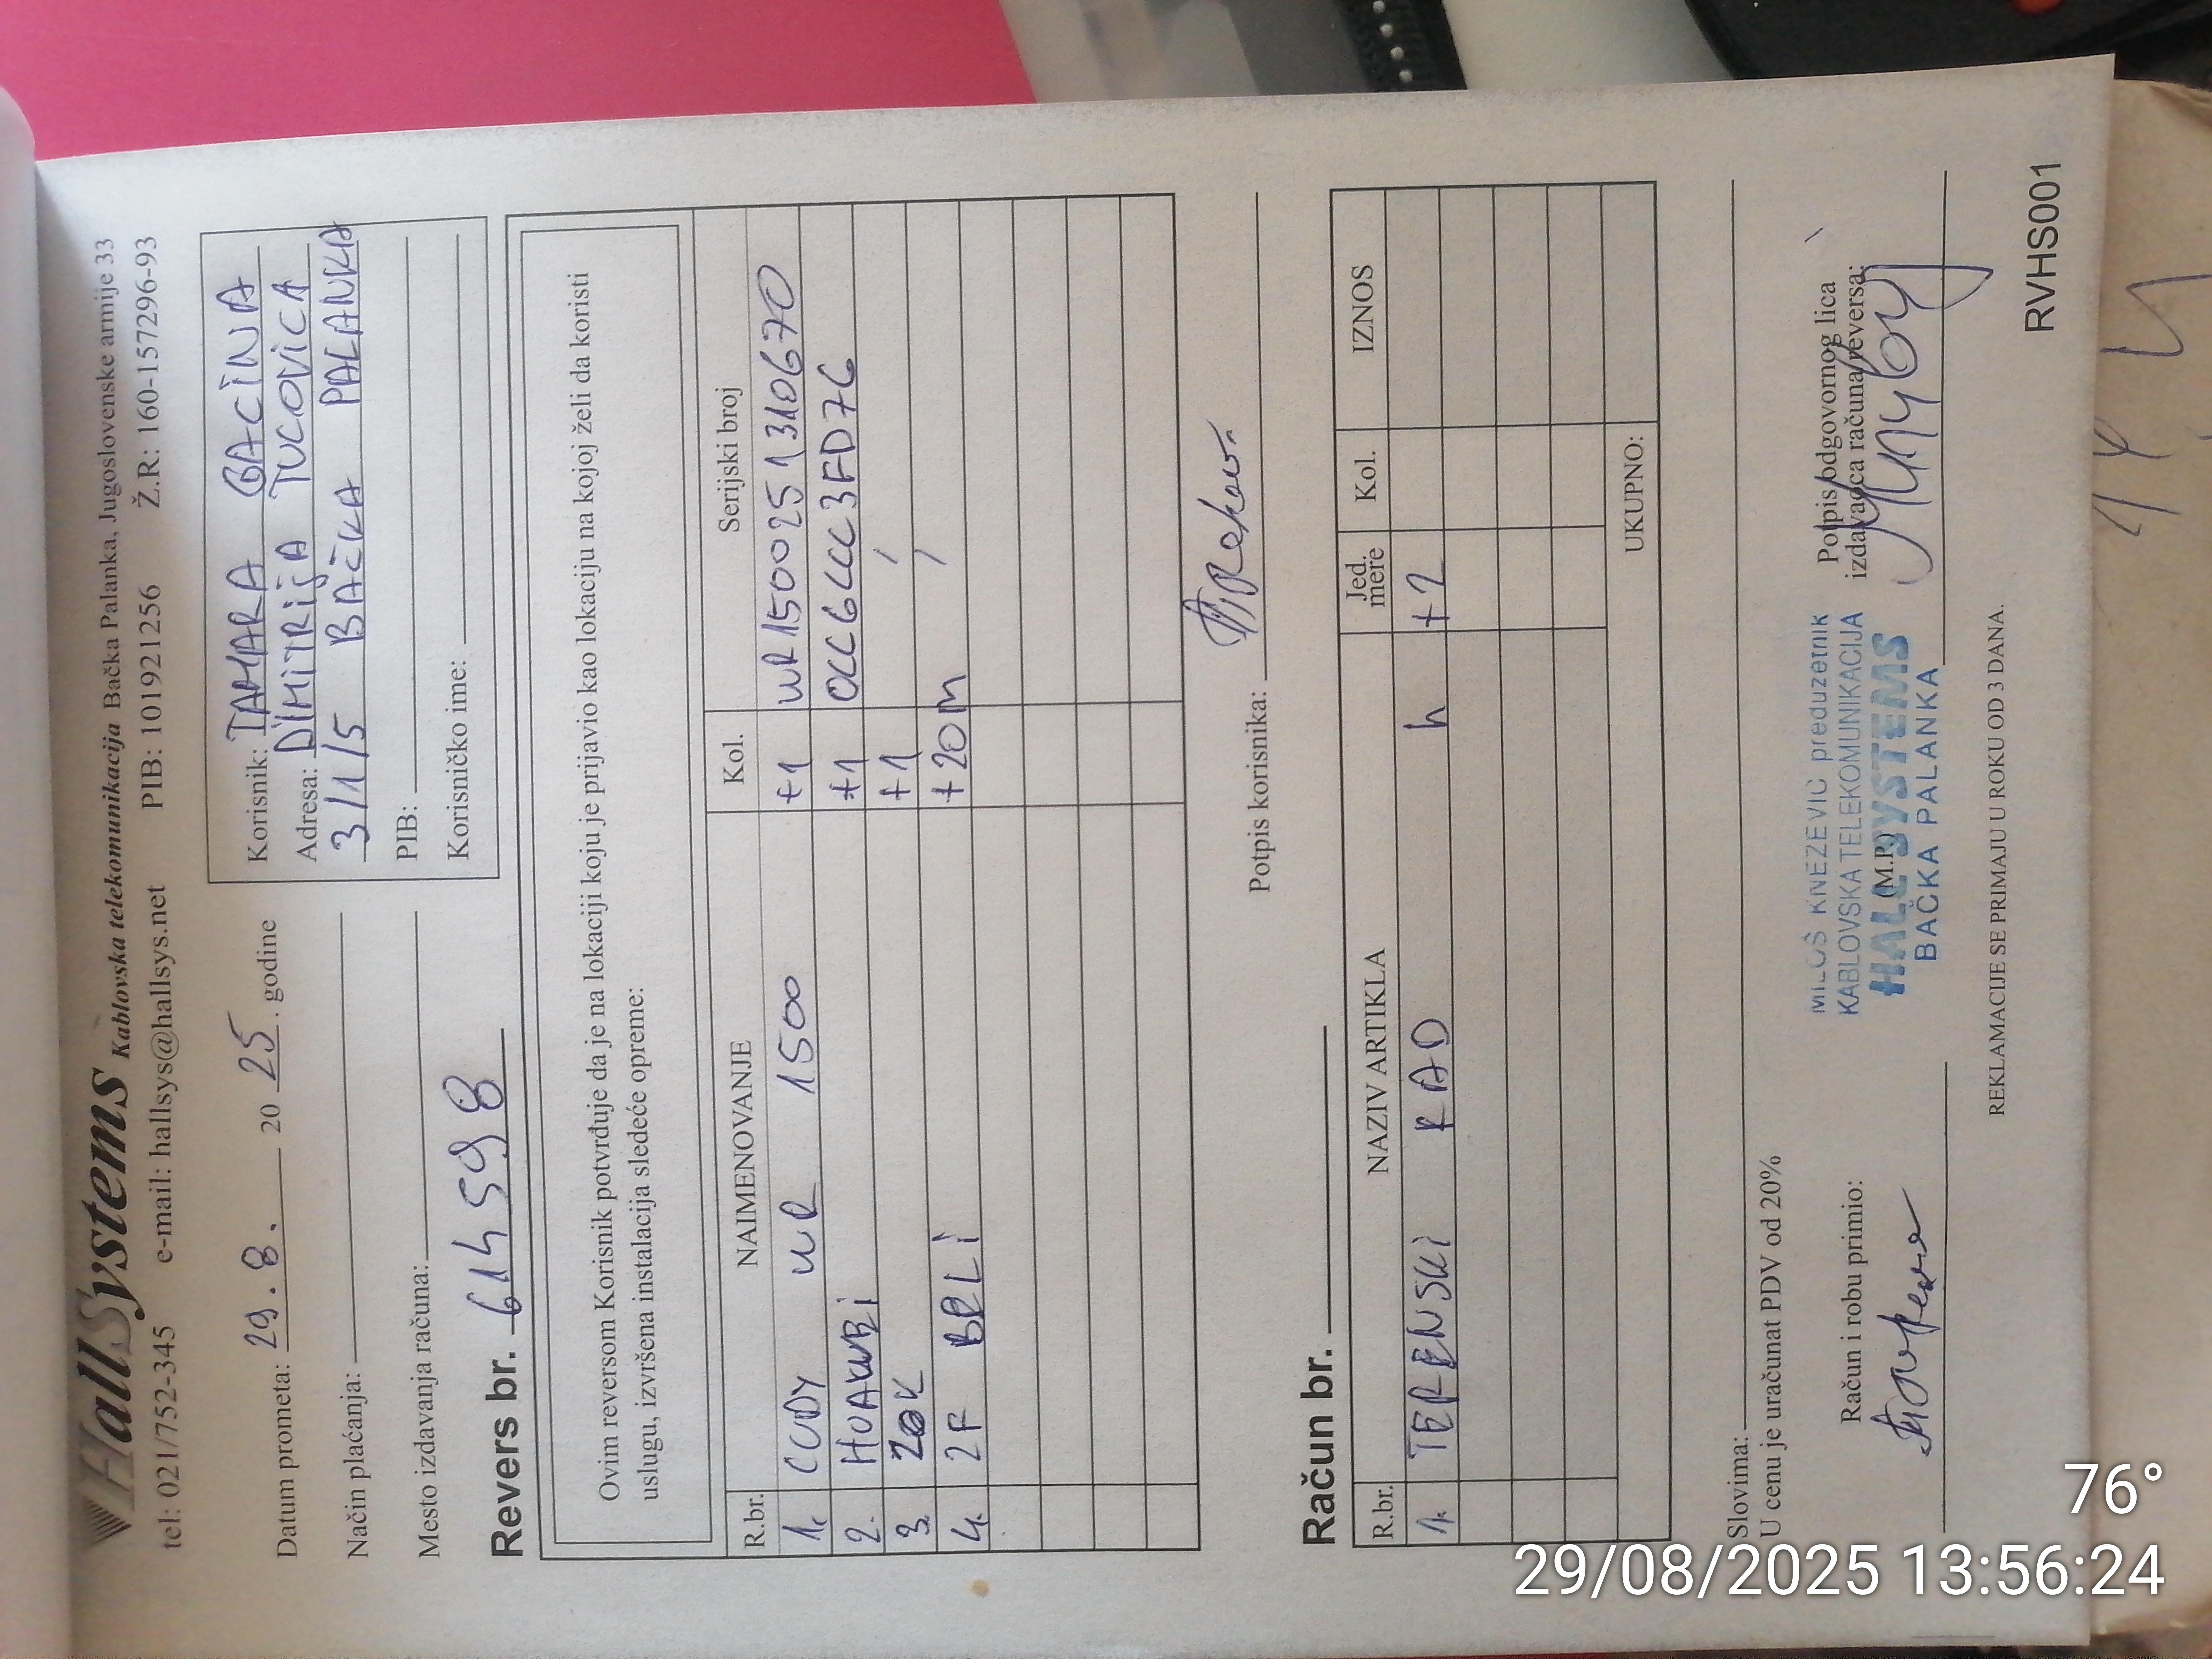 HallSystems Kablovska telekomunikacija Bačka Palanka, Jugoslovenske armije 33
tel: 021/752-345 e-mail: hallsys@hallsys.net PIB: 101921256 Ž.R: 160-157296-93
Datum prometa: 29.8. 2025. godine
Način plaćanja:
Mesto izdavanja računa:
Korisnik: TAMARA GAĆINA
Adresa: DIMITRIJA TUCOVIĆA
3/1/5 BAČKA PALANKA
PIB:
Korisničko ime:
Revers br. 614598
Ovim reversom Korisnik potvrđuje da je na lokaciji koju je prijavio kao lokaciju na kojoj želi da koristi
uslugu, izvršena instalacija sledeće opreme:
R.br. NAIMENOVANJE Kol. Serijski broj
1. CUDY WR 1500 +1 WR1500251310670
2. HUAWEI +1
3. +1 /
4. 2F BELI +20m /
Potpis korisnika:
Račun br.
R.br. NAZIV ARTIKLA Jed. mere Kol. IZNOS
1. TERENSKI RAD h +2
UKUPNO:
Slovima:
U cenu je uračunat PDV od 20%
Račun i robu primio:
MILOŠ KNEŽEVIĆ preduzetnik
KABLOVSKA TELEKOMUNIKACIJA
HALL SYSTEMS
BAČKA PALANKA
(M.P.)
Potpis odgovornog lica
izdavaoca računa/reversa:
REKLAMACIJE SE PRIMAJU U ROKU OD 3 DANA.
RVHS001
76°
29/08/2025 13:56:24